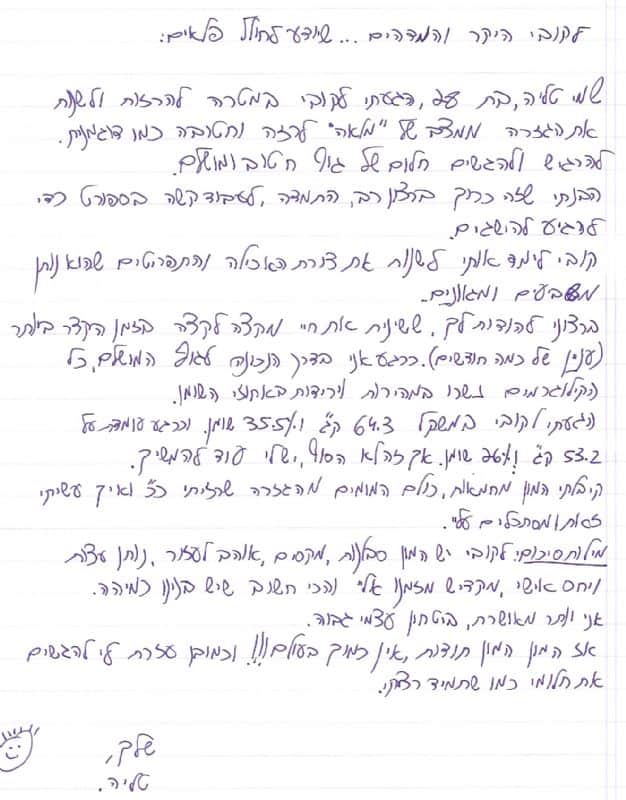 לקובי היקר והמדהים... שיודע לחולל פלאים:
שמי טליה, בת, הגעתי לקובי במטרה להרזות ולשנות
את הגזרה ממצב של "מלאה" לרזה וחטובה כמו דוגמנית.
להרגיש ולהגשים חלום של גוף חטוב ומושלם.
הבנתי שזה כרוך ברצון רב, התמדה, לעבוד קשה בספורט כדי
להגיע להישגים.
קובי לימד אותי לשנות את צורת האכילה והתפריטים שהוא נותן
משביעים ומגוונים.
ברצוני להודות לך, ששינית את חיי מקצה לקצה בזמן הקצר ביותר
(ענין של כמה חודשים). כרגע אני בדרך הנכונה לגוף המושלם, כל
הקילוגרמים נשרו במהירות וירידות באחוזי השומן.
הגעתי לקובי במשקל 64.3 ק"ג ו 35.5% שומן. וכרגע עומדת על
53.2 ק"ג ו 26% שומן. אך זה לא הסוף, יש לי עוד להמשיך.
קיבלתי המון מחמאות, כולם המומים מהגזרה שרזיתי כ"כ ואיך עשיתי
זאת ומסתכלים עלי.
מילות סיכום: לקובי יש המון סבלנות, מקסים, אוהב לעזור, נותן עצות
ויחס אישי, מקדיש מזמנו אלי והכי חשוב שיש בנינו כימיה.
אני יותר מאושרת, ביטחון עצמי גבוה.
אז המון המון תודות, אין כמוך בעולם!!! וכמובן עזרת לי להגשים
את חלומי כמו שתמיד רציתי.
שלך,
טליה.